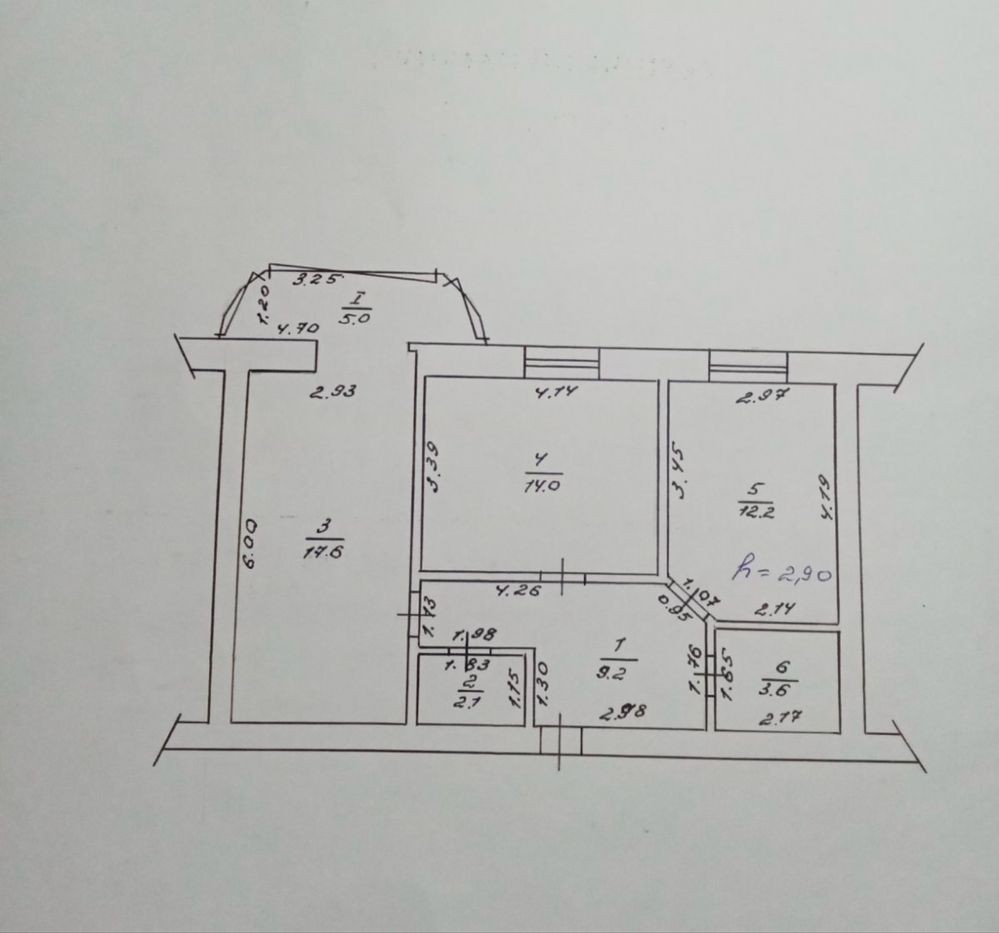 3.25
1.20
I
5.0
4.70
2.93
4.14
2.97
3.39
3.45
4
14.0
5
12.2
4.19
3
17.6
6.00
h = 2,90
4.26
1.07
0.95
2.14
1.13
1.98
1.83
2
2.1
1.15
1.30
1
9.2
1.76
1.65
6
3.6
2.98
2.17